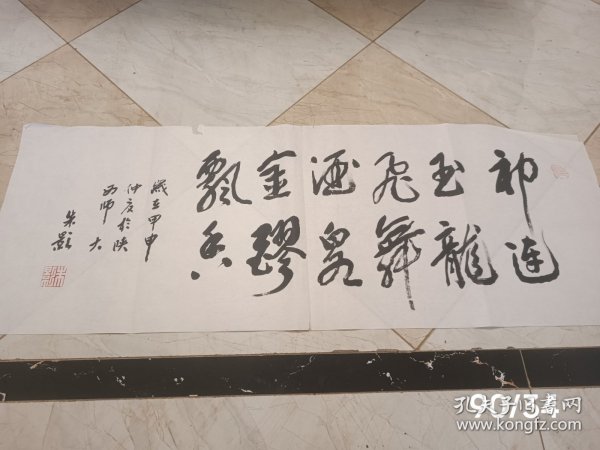 祁連
玉龍
飛舞
酒泉
金醪
飄香
歲在甲申
仲夏於陝
西師大
朱
90/34
孔夫子旧书网
www.kongfz.com